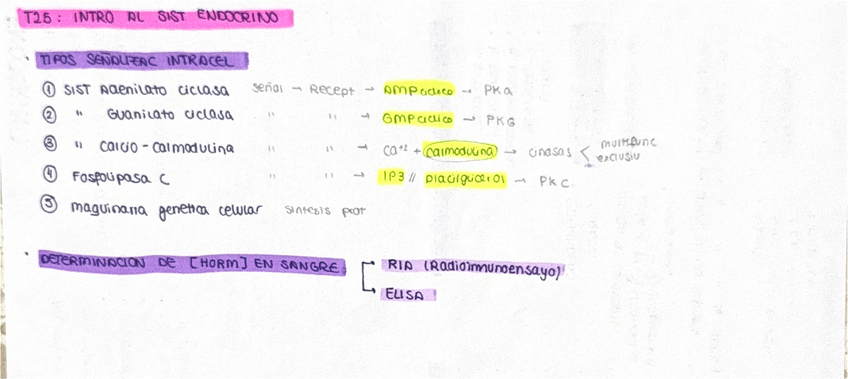 T25: INTRO AL SIST ENDOCRINO
· TIPOS SEÑALIZAC INTRACEL
① SIST Adenilato ciclasa señal → Recept → AMP ciclico → PKA
② " Guanilato ciclasa " " → GMP ciclico → PKG
③ " Calcio - calmodulina " " → Ca+2 + calmodulina → cinasas < multifunc exclusiv
④ Fosfolipasa C " " → IP3 // Diacilglicerol → PKC
⑤ maquinaria genetica celular sintesis prot
· DETERMINACION DE [HORM] EN SANGRE
RIA (Radioinmunoensayo)
ELISA